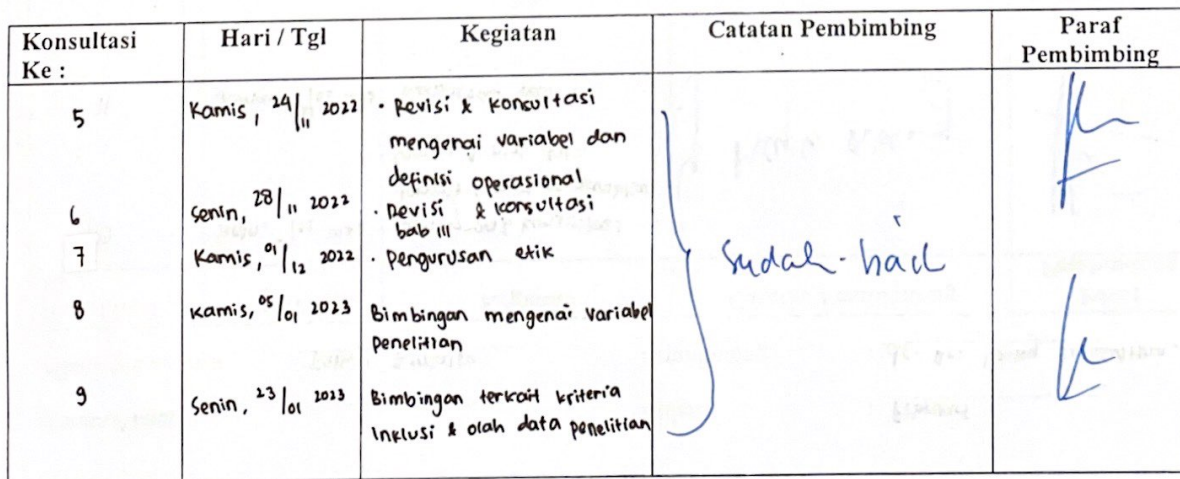 Konsultasi Ke :
Hari / Tgl
Kegiatan
Catatan Pembimbing
Paraf Pembimbing
5
Kamis, 24/11 2022
• Revisi & konsultasi
mengenai variabel dan
definisi operasional
6
Senin, 28/11 2022
• Revisi & konsultasi
bab III
7
Kamis, 01/12 2022
• Pengurusan etik
8
Kamis, 05/01 2023
Bimbingan mengenai variabel
penelitian
9
Senin, 23/01 2023
Bimbingan terkait kriteria
inklusi & olah data penelitian
Sudah baik